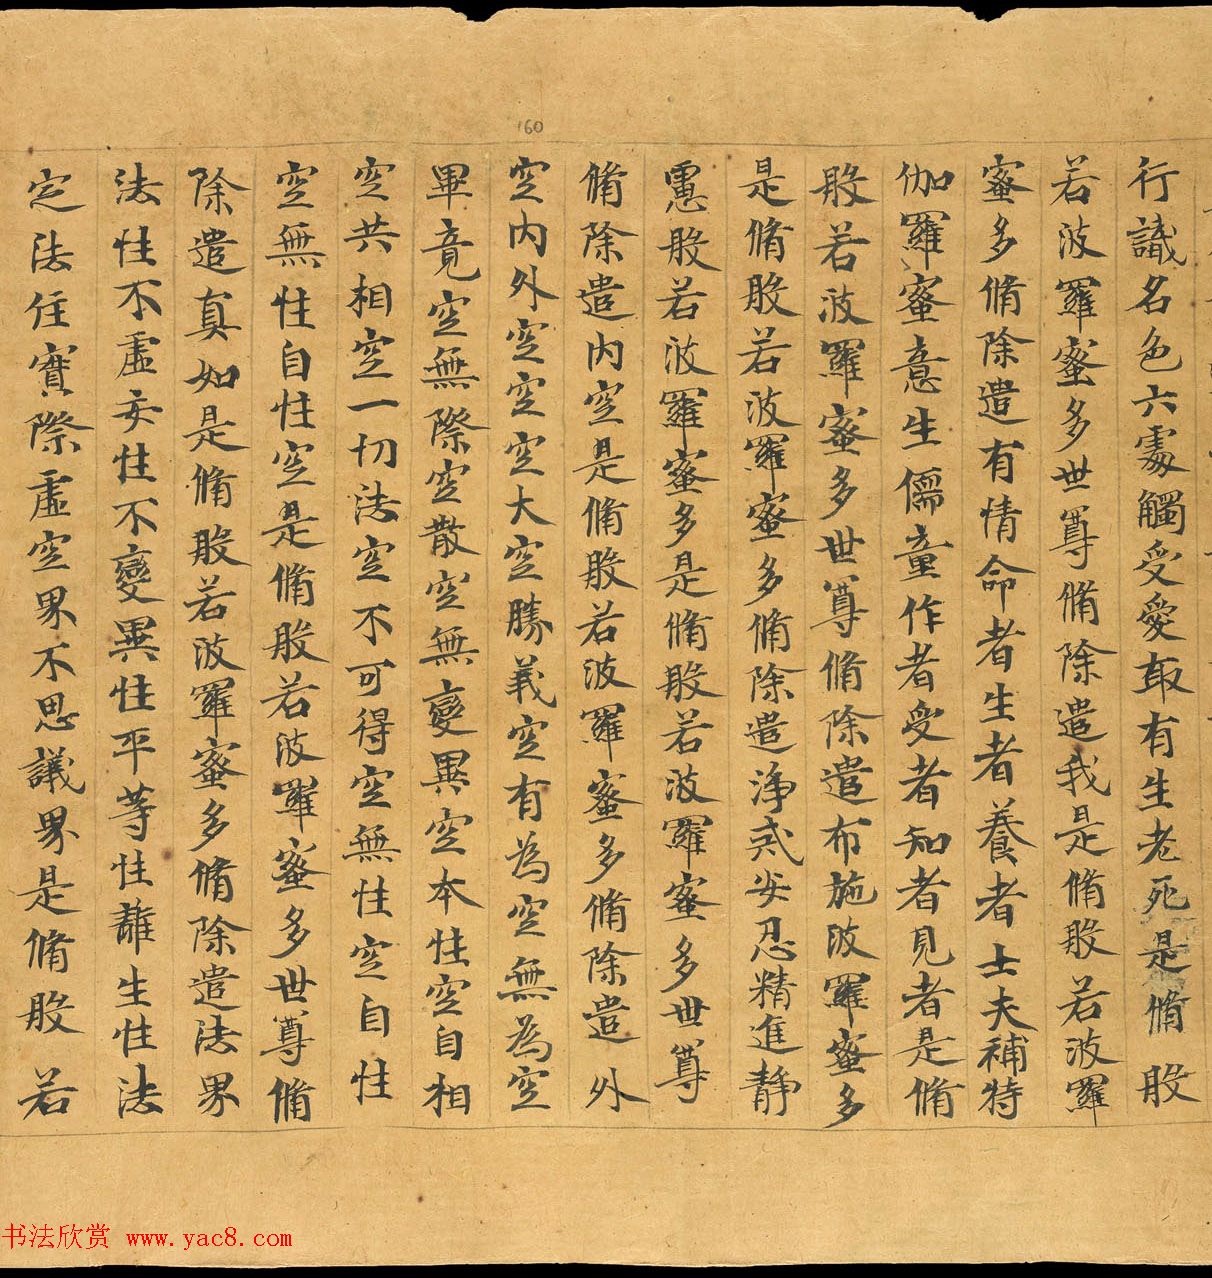 160
行識名色六處觸受愛取有生老死是脩般
若波羅蜜多世尊脩除遣我是脩般若波羅
蜜多脩除遣有情命者生者養者士夫補特
伽羅蜜意生儒童作者受者知者見者是脩
般若波羅蜜多世尊脩除遣布施波羅蜜多
是脩般若波羅蜜多脩除遣淨戒安忍精進靜
慮般若波羅蜜多是脩般若波羅蜜多世尊
脩除遣内空是脩般若波羅蜜多脩除遣外
空内外空空空大空勝義空有為空無為空
畢竟空無際空散空無變異空本性空自相
空共相空一切法空不可得空無性空自性
空無性自性空是脩般若波羅蜜多世尊脩
除遣真如是脩般若波羅蜜多脩除遣法界
法性不虛妄性不變異性平等性離生性法
定法住實際虛空界不思議界是脩般若
书法欣赏 www.yac8.com